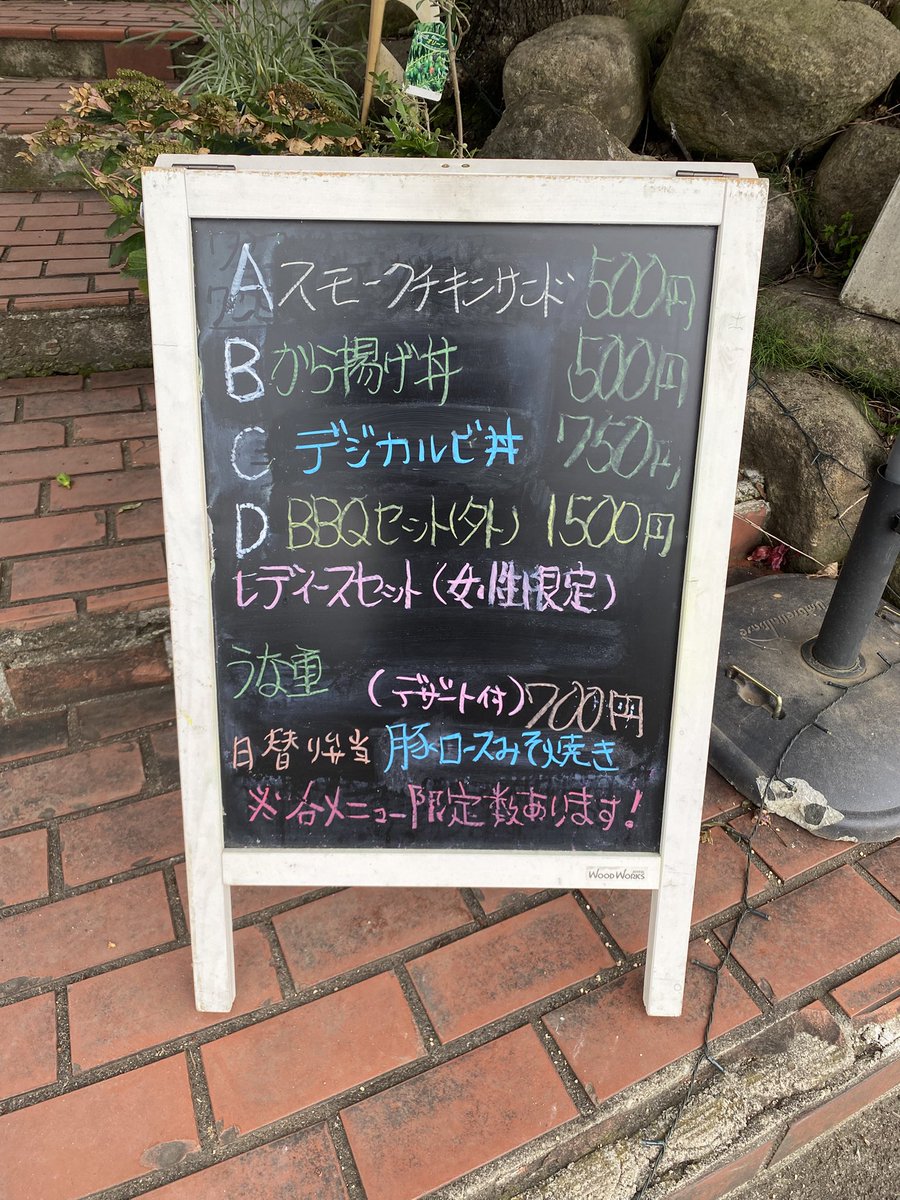 A スモークチキンサンド 500円
B から揚げ丼 500円
C デジカルビ丼 750円
D BBQセット(外) 1500円
レディースセット(女性限定)
うな重 (デザート付) 700円
日替り弁当 豚ロースみそ焼き
※各メニュー限定数あります!
WOODWORKS